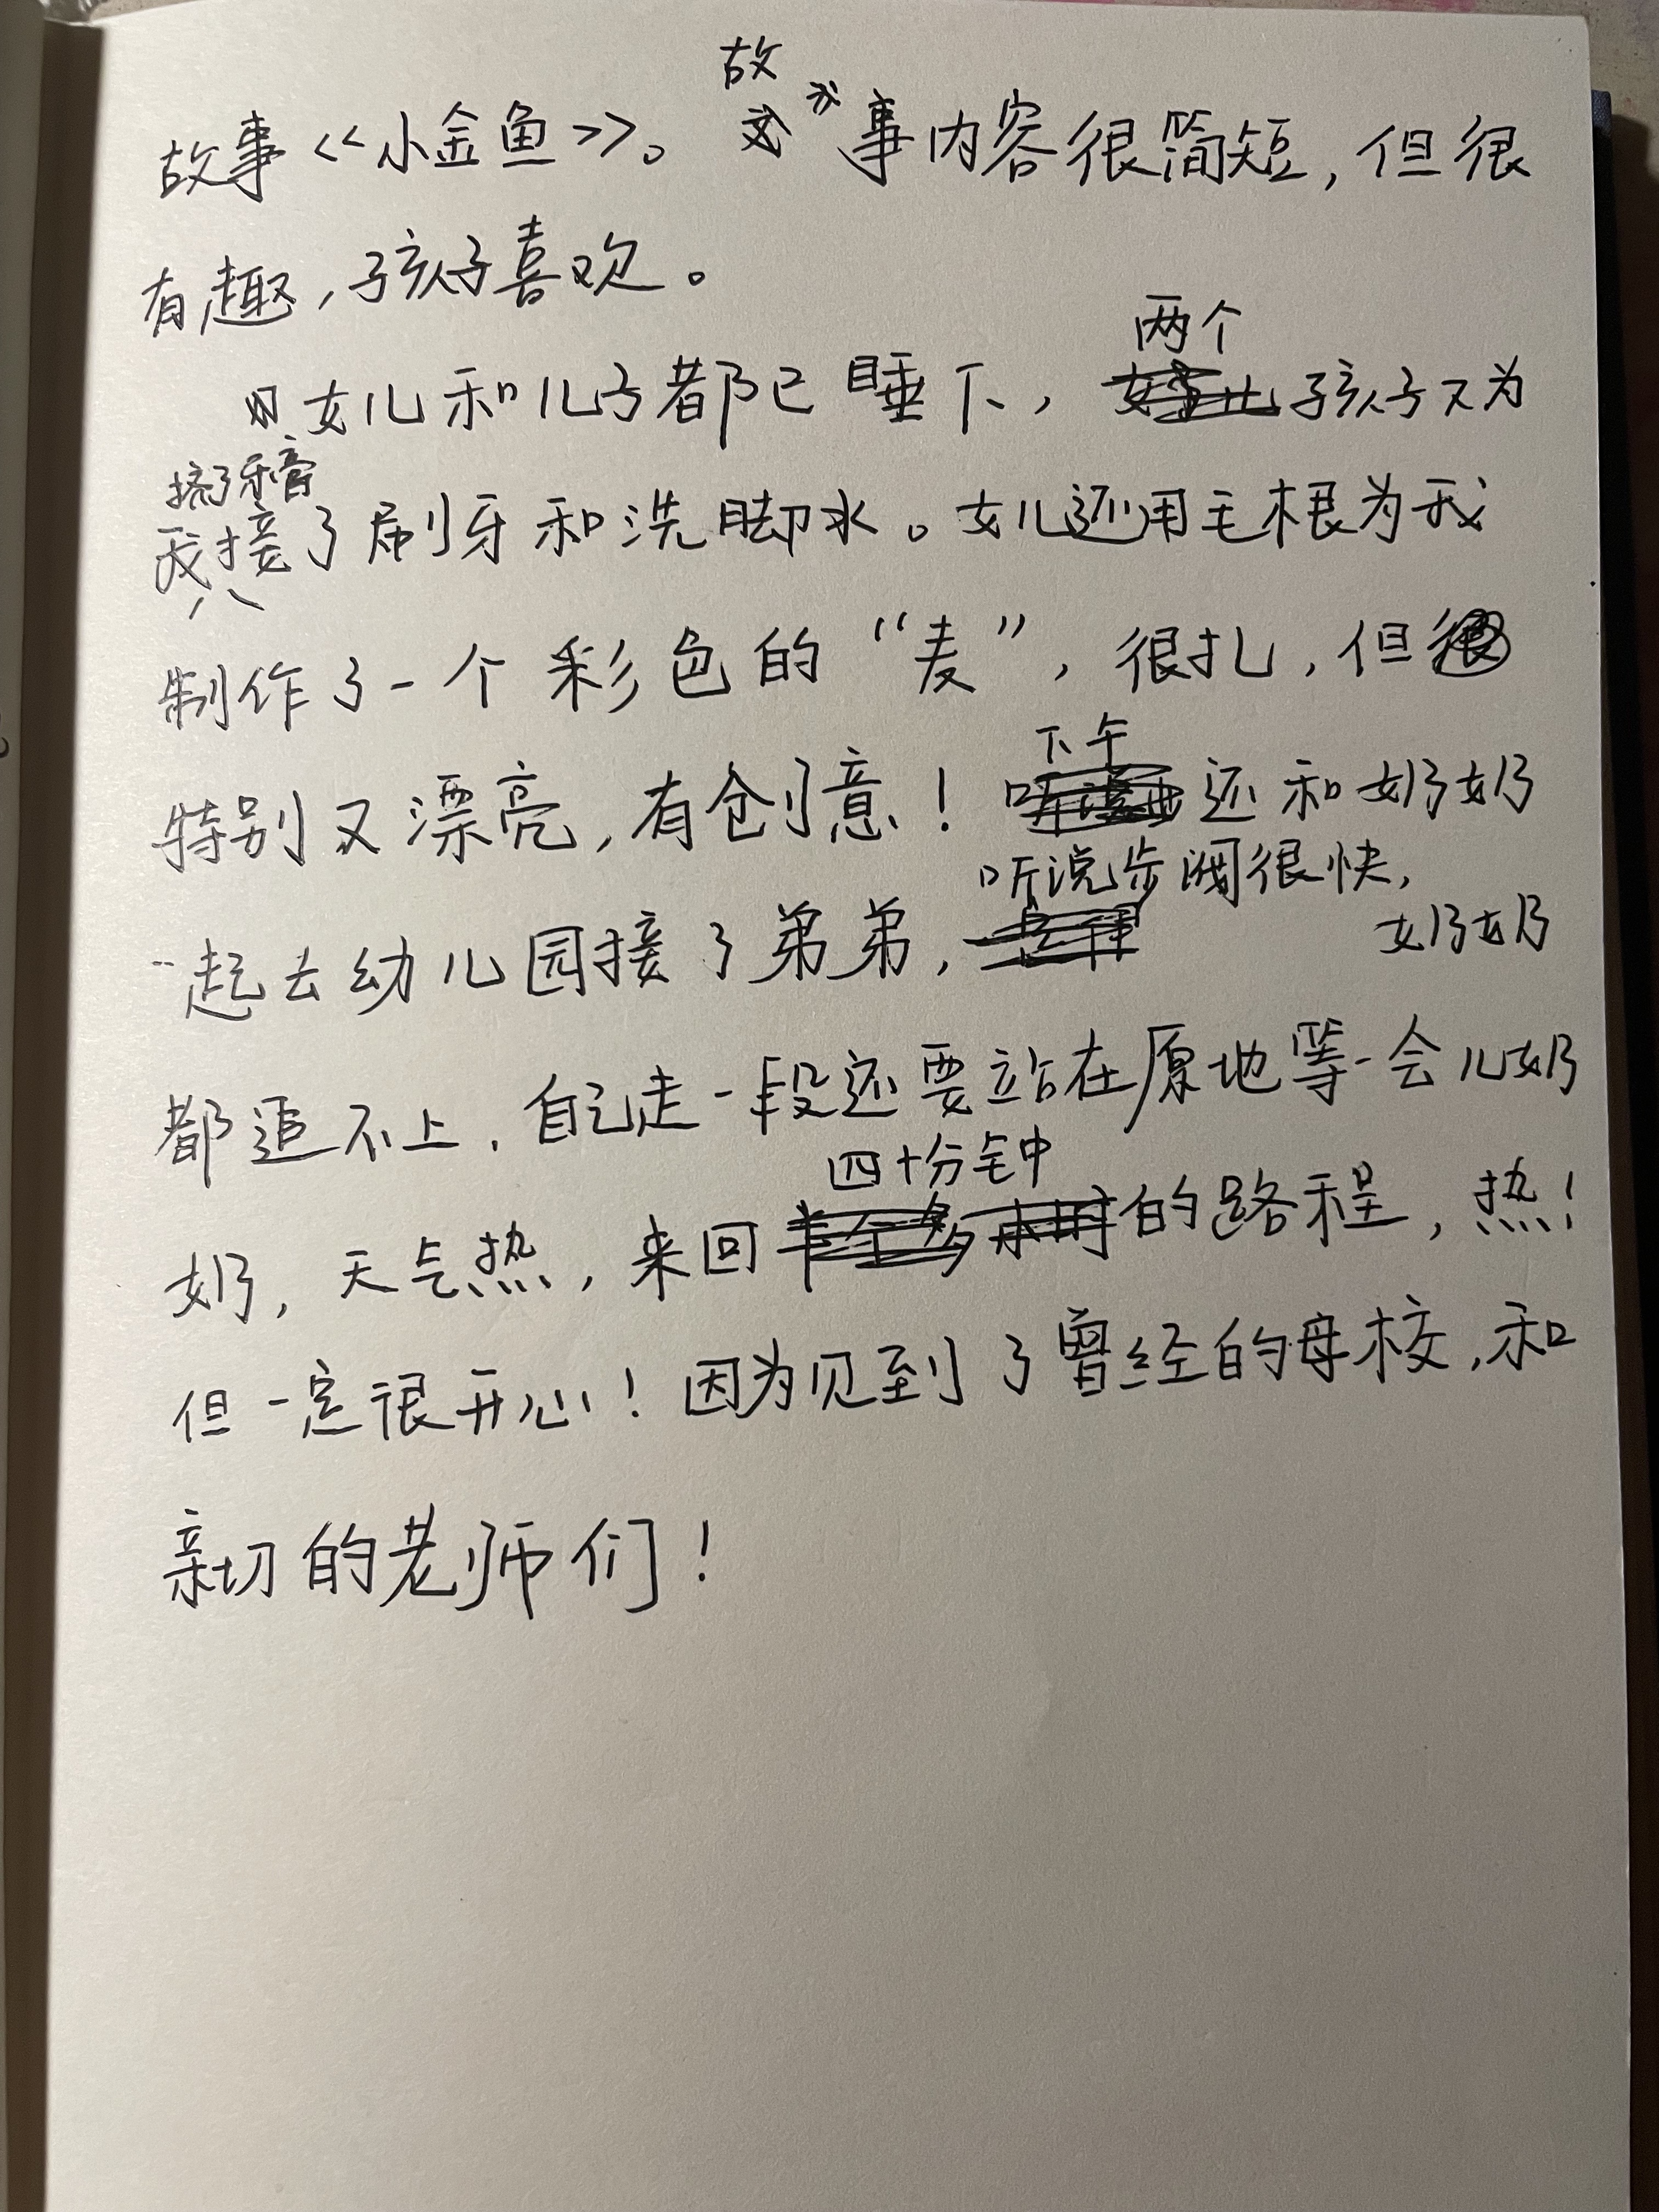 故
故事《小金鱼》。事内容很简短，但很
有趣，孩子喜欢。
两个
女儿和儿子都已睡下，孩子又为
挤了牙膏
我接了刷牙和洗脚水。女儿还用毛根为我
制作了一个彩色的“麦”，很扎，但
下午
特别又漂亮，有创意！还和奶奶
听说步阔很快，
一起去幼儿园接了弟弟，奶奶
都追不上，自己走一段还要站在原地等一会儿奶
四十分钟
奶，天气热，来回的路程，热！
但一定很开心！因为见到了曾经的母校，和
亲切的老师们！